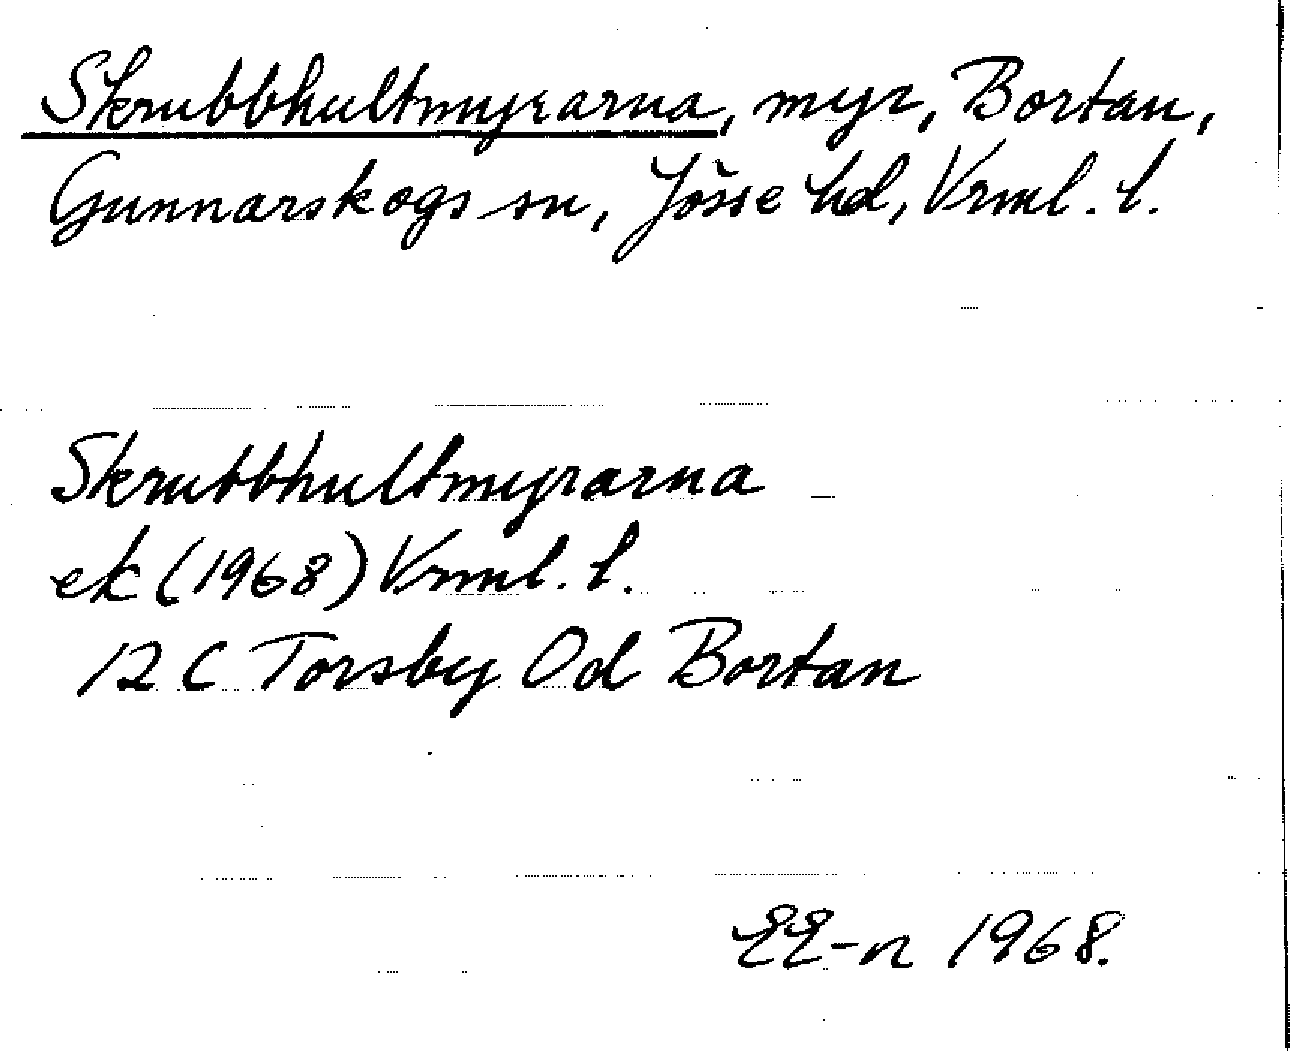 Skrubbhultmyrarna, myr, Bortan,
Gunnarskogs sn, Jösse hd, Vrml. l.
Skrubbhultmyrarna
ek (1968) Vrml. l.
12 C Torsby Od Bortan
EE-n 1968.